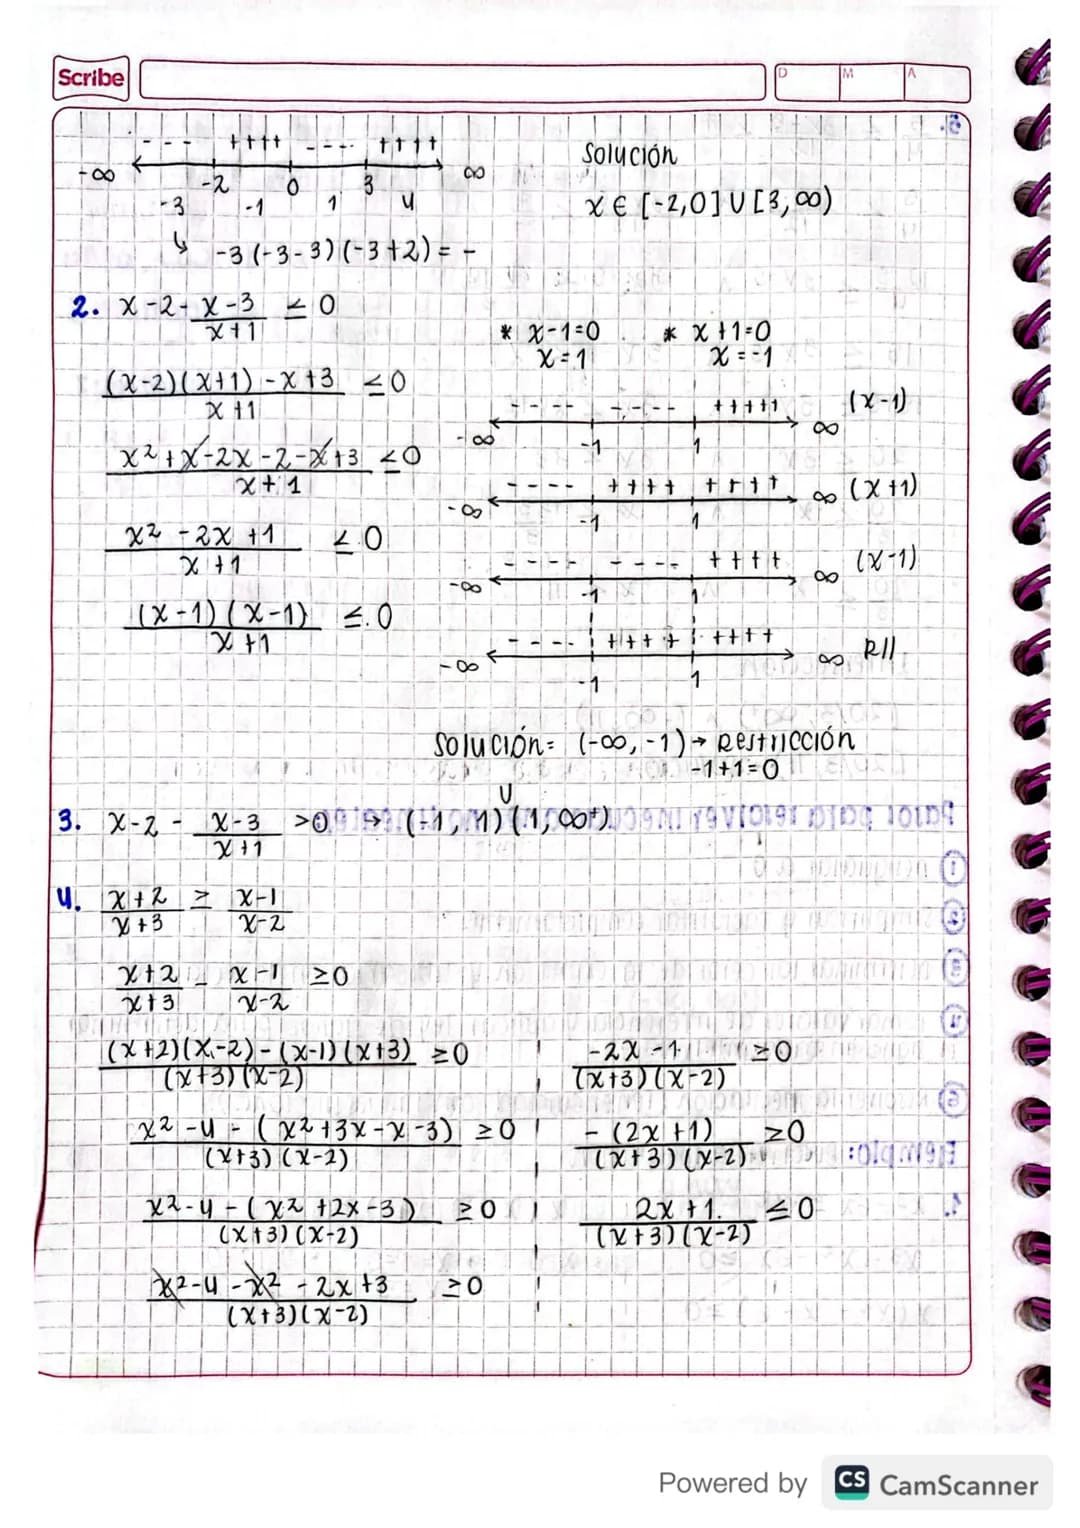 Scribe
D M A
- - - ++++ - - - - ++++
-∞ -2 0 3 ∞
-3 -1 1 4
↳ -3(-3-3)(-3+2) = -
Solución
x ∈ [-2,0] U [3,∞)
2. x-2- x-3/x+1 ≤ 0
(x-2)(x+1)-x+3/x+1 ≤0
x²+x-2x-2-x+3/x+1 ≤0
x²-2x+1/x+1 ≤0
(x-1)(x-1)/x+1 ≤.0
* x-1=0 * x+1=0
x=1 x=-1
- - - - - - - - +++++ (x-1)
-∞ -1 1 ∞
- - - - ++++ ++++ (x+1)
-∞ -1 1 ∞
- - - - - - - - ++++ (x-1)
-∞ -1 1 ∞
- - - - ++++ ++++ R//
-∞ -1 1 ∞
Solución= (-∞,-1)→ Restricción
-1+1=0
3. x-2 - x-3/x+1 >0 → (-1,1) U (1,∞+)
4. x+2/x+3 ≥ x-1/x-2
x+2/x+3 - x-1/x-2 ≥0
(x+2)(x-2)-(x-1)(x+3)/(x+3)(x-2) ≥0
x²-4-(x²+3x-x-3)/(x+3)(x-2) ≥0
x²-4-(x²+2x-3)/(x+3)(x-2) ≥0
x²-4-x²-2x+3/(x+3)(x-2) ≥0
-2x-1/(x+3)(x-2) ≥0
-(2x+1)/(x+3)(x-2) ≥0
2x+1/(x+3)(x-2) ≤0
Powered by CS CamScanner